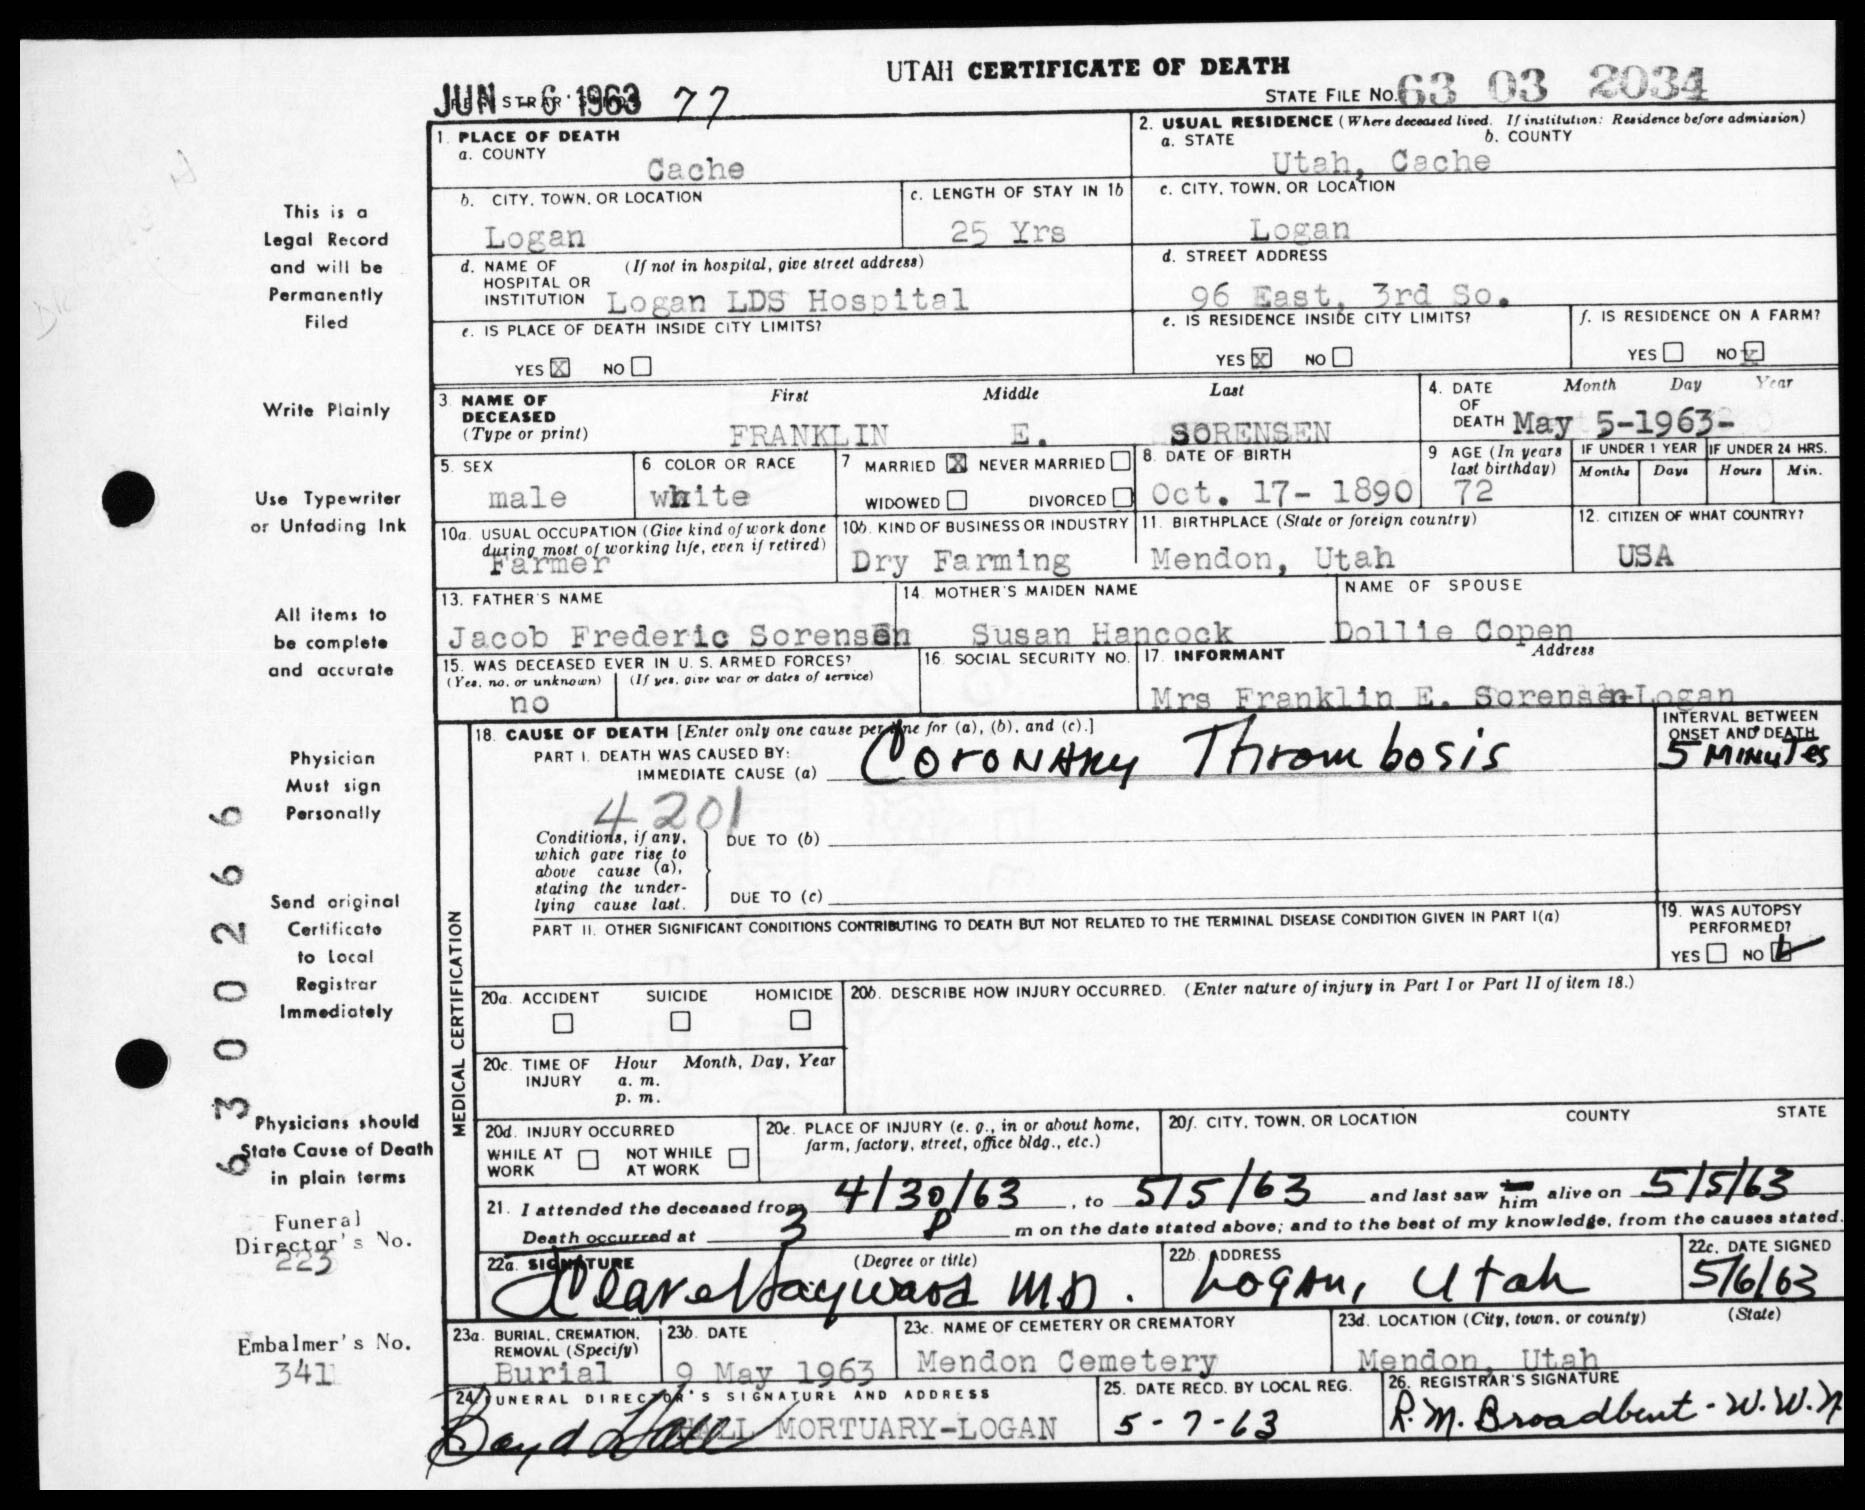 UTAH CERTIFICATE OF DEATH
JUN - 6 1963 77
REGISTRAR'S NO.
STATE FILE NO. 63 03 2034
1. PLACE OF DEATH
a. COUNTY
Cache
2. USUAL RESIDENCE (Where deceased lived. If institution: Residence before admission)
a. STATE b. COUNTY
Utah, Cache
b. CITY, TOWN, OR LOCATION
Logan
c. LENGTH OF STAY IN 1b
25 Yrs
c. CITY, TOWN, OR LOCATION
Logan
d. NAME OF (If not in hospital, give street address)
HOSPITAL OR
INSTITUTION Logan LDS Hospital
d. STREET ADDRESS
96 East, 3rd So.
e. IS PLACE OF DEATH INSIDE CITY LIMITS?
YES X NO
e. IS RESIDENCE INSIDE CITY LIMITS?
YES X NO
f. IS RESIDENCE ON A FARM?
YES NO X
3. NAME OF
DECEASED
(Type or print)
First Middle Last
FRANKLIN E. SORENSEN
4. DATE Month Day Year
OF
DEATH May 5-1963-
5. SEX
male
6. COLOR OR RACE
white
7 MARRIED X NEVER MARRIED
WIDOWED DIVORCED
8. DATE OF BIRTH
Oct. 17- 1890
9 AGE (In years
last birthday)
72
IF UNDER 1 YEAR IF UNDER 24 HRS.
Months Days Hours Min.
10a. USUAL OCCUPATION (Give kind of work done
during most of working life, even if retired)
Farmer
10b. KIND OF BUSINESS OR INDUSTRY
Dry Farming
11. BIRTHPLACE (State or foreign country)
Mendon, Utah
12. CITIZEN OF WHAT COUNTRY?
USA
13. FATHER'S NAME
Jacob Frederic Sorensen
14. MOTHER'S MAIDEN NAME
Susan Hancock
NAME OF SPOUSE
Dollie Copen
15. WAS DECEASED EVER IN U. S. ARMED FORCES?
(Yes, no, or unknown) (If yes, give war or dates of service)
no
16. SOCIAL SECURITY NO.
17. INFORMANT Address
Mrs Franklin E. Sorensen-Logan
MEDICAL CERTIFICATION
18. CAUSE OF DEATH [Enter only one cause per line for (a), (b), and (c).]
PART I. DEATH WAS CAUSED BY:
IMMEDIATE CAUSE (a) Coronary Thrombosis
INTERVAL BETWEEN
ONSET AND DEATH
5 Minutes
4201
Conditions, if any,
which gave rise to
above cause (a),
stating the under-
lying cause last.
DUE TO (b)
DUE TO (c)
PART II. OTHER SIGNIFICANT CONDITIONS CONTRIBUTING TO DEATH BUT NOT RELATED TO THE TERMINAL DISEASE CONDITION GIVEN IN PART I(a)
19. WAS AUTOPSY
PERFORMED?
YES NO
20a. ACCIDENT SUICIDE HOMICIDE
20b. DESCRIBE HOW INJURY OCCURRED. (Enter nature of injury in Part I or Part II of item 18.)
20c. TIME OF Hour Month, Day, Year
INJURY a. m.
p. m.
20d. INJURY OCCURRED
WHILE AT NOT WHILE
WORK AT WORK
20e. PLACE OF INJURY (e. g., in or about home,
farm, factory, street, office bldg., etc.)
20f. CITY, TOWN, OR LOCATION COUNTY STATE
21. I attended the deceased from 4/30/63, to 5/5/63 and last saw him alive on 5/5/63
Death occurred at 3 P m on the date stated above; and to the best of my knowledge, from the causes stated.
22a. SIGNATURE (Degree or title)
J Clare Hayward M.D.
22b. ADDRESS
Logan, Utah
22c. DATE SIGNED
5/6/63
23a. BURIAL, CREMATION,
REMOVAL (Specify)
Burial
23b. DATE
9 May 1963
23c. NAME OF CEMETERY OR CREMATORY
Mendon Cemetery
23d. LOCATION (City, town, or county) (State)
Mendon, Utah
24. FUNERAL DIRECTOR'S SIGNATURE AND ADDRESS
Boyd Hall HALL MORTUARY-LOGAN
25. DATE RECD. BY LOCAL REG.
5-7-63
26. REGISTRAR'S SIGNATURE
R.M. Broadbent - W.W.N
This is a
Legal Record
and will be
Permanently
Filed
Write Plainly
Use Typewriter
or Unfading Ink
All items to
be complete
and accurate
Physician
Must sign
Personally
Send original
Certificate
to Local
Registrar
Immediately
Physicians should
State Cause of Death
in plain terms
Funeral
Director's No.
223
Embalmer's No.
341
6300266